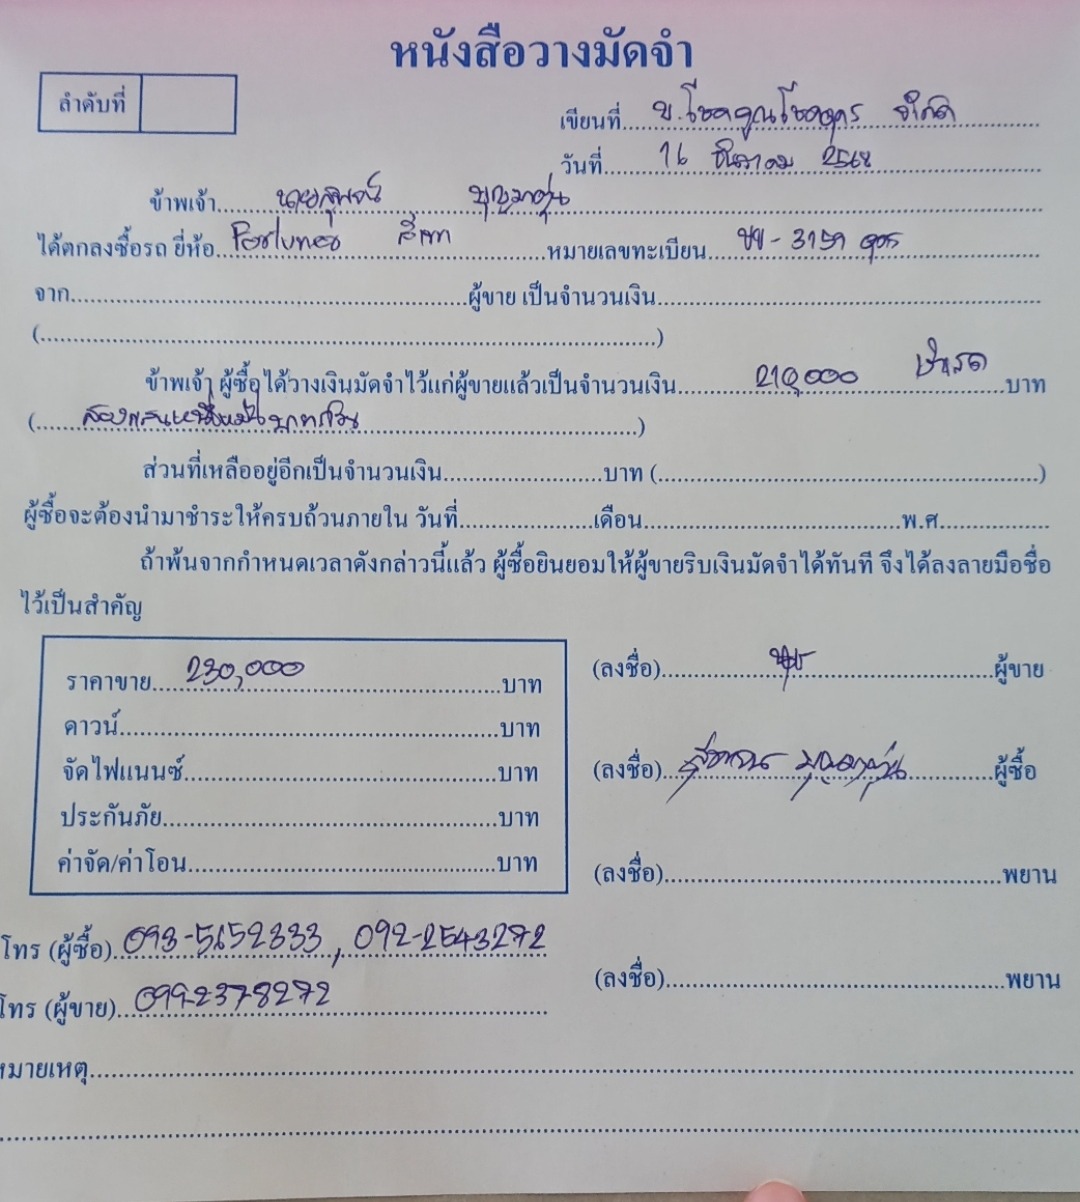 หนังสือวางมัดจำ
ลำดับที่
เขียนที่ บ.โชคคูณโชคอุดร จำกัด
วันที่ 16 ธันวาคม 2568
ข้าพเจ้า นายสุพจน์ บุญมาตุ่น
ได้ตกลงซื้อรถ ยี่ห้อ Fortuner สีเทา หมายเลขทะเบียน ขข - 3159 อุดร
จาก ผู้ขาย เป็นจำนวนเงิน
( )
ข้าพเจ้า ผู้ซื้อได้วางเงินมัดจำไว้แก่ผู้ขายแล้วเป็นจำนวนเงิน 210,000 บาท
(สองแสนหนึ่งหมื่นบาทถ้วน)
ส่วนที่เหลืออยู่อีกเป็นจำนวนเงิน บาท ( )
ผู้ซื้อจะต้องนำมาชำระให้ครบถ้วนภายใน วันที่ เดือน พ.ศ
ถ้าพ้นจากกำหนดเวลาดังกล่าวนี้แล้ว ผู้ซื้อยินยอมให้ผู้ขายริบเงินมัดจำได้ทันที จึงได้ลงลายมือชื่อ
ไว้เป็นสำคัญ
ราคาขาย 230,000 บาท
ดาวน์ บาท
จัดไฟแนนซ์ บาท
ประกันภัย บาท
ค่าจัด/ค่าโอน บาท
(ลงชื่อ) ผู้ขาย
(ลงชื่อ) ผู้ซื้อ
(ลงชื่อ) พยาน
(ลงชื่อ) พยาน
โทร (ผู้ซื้อ) 093-5652333, 092-2543272
โทร (ผู้ขาย) 0992378272
หมายเหตุ